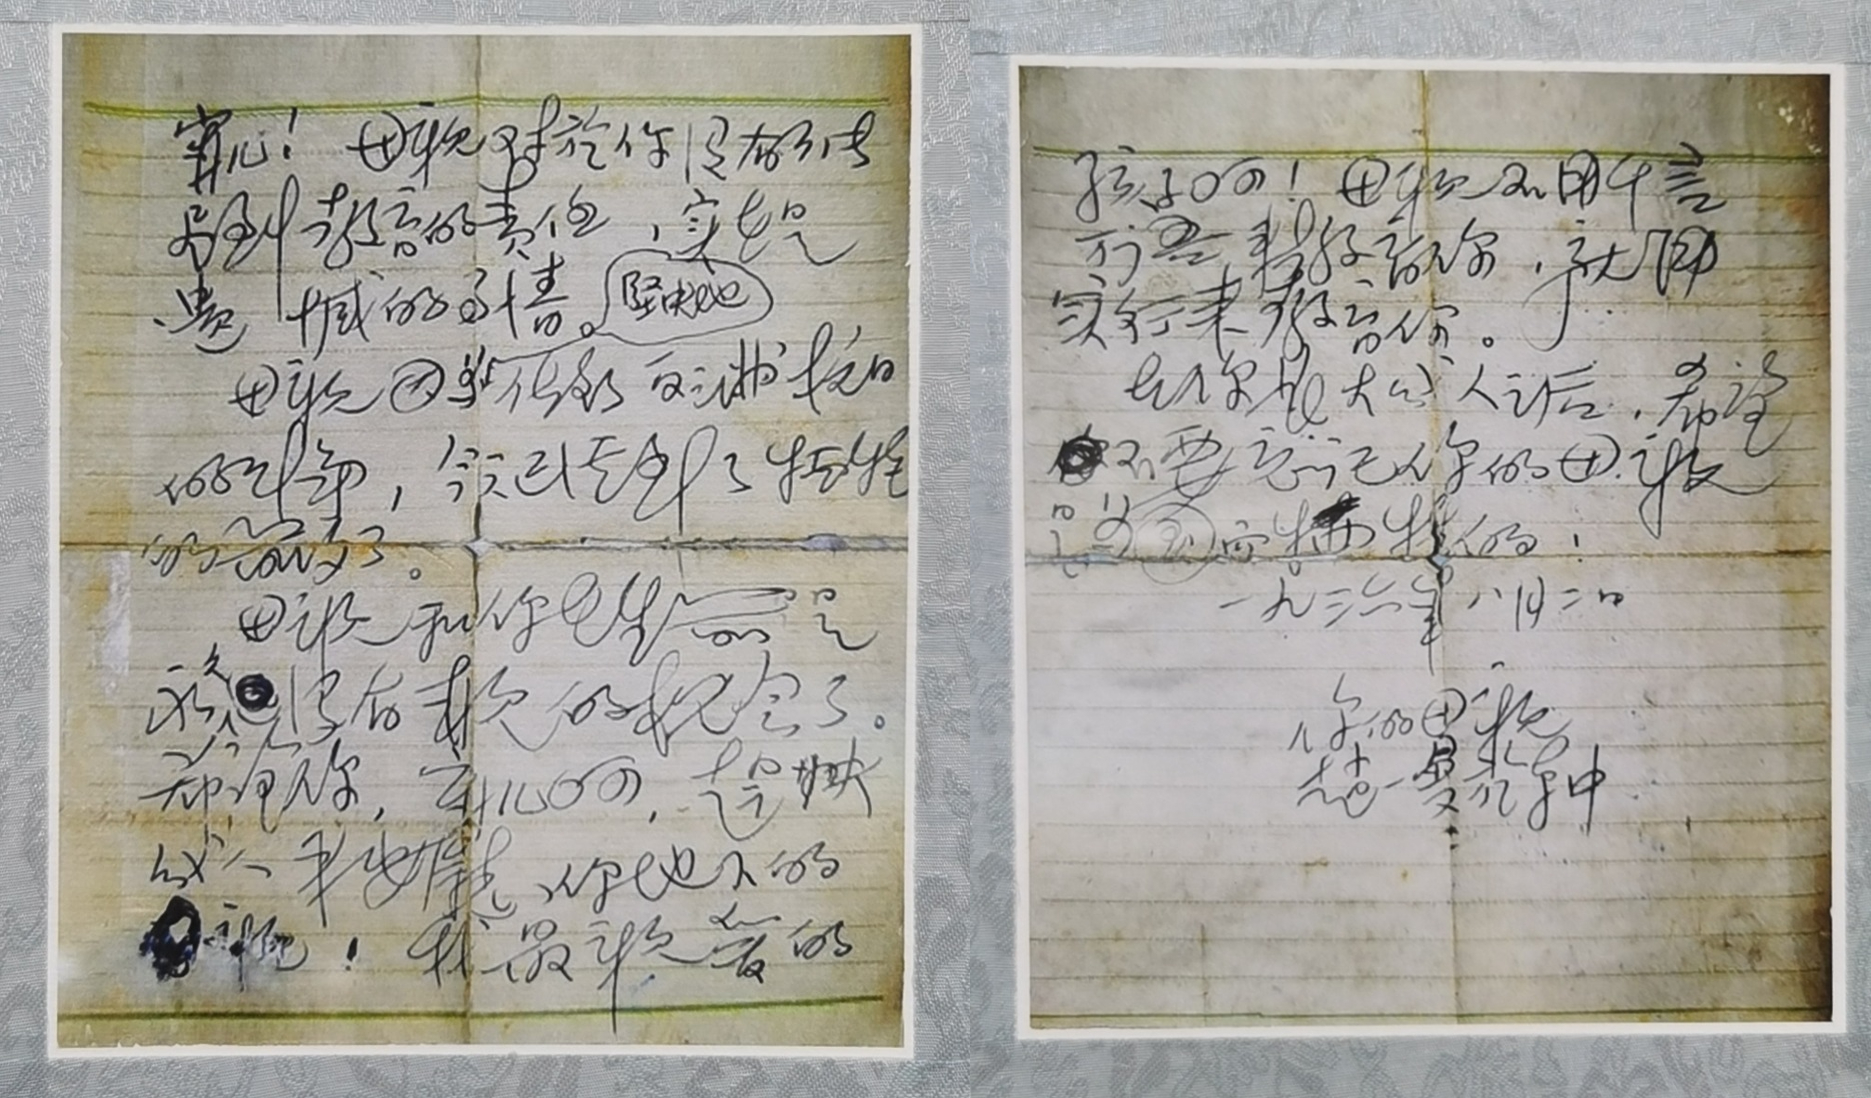 宁儿！母亲对於你没有能尽
到教育的责任，实在是
遗憾的事情。
坚决地
母亲因为 做了反满抗日
的斗争，今天已经到了牺牲
的前夕了。
母亲和你在生前是
永久没有见的机会了。
希望你，宁儿啊，赶快
成人，来安慰你地下的
母亲！我最亲爱的
孩子啊！母亲不用千言
万语来教育你，就用
实行来教育你。
在你长大成人之后，希望
不要忘记你的母亲
是为国而牺牲的！
一九三六年八月二日
你的母亲
赵一曼於车中